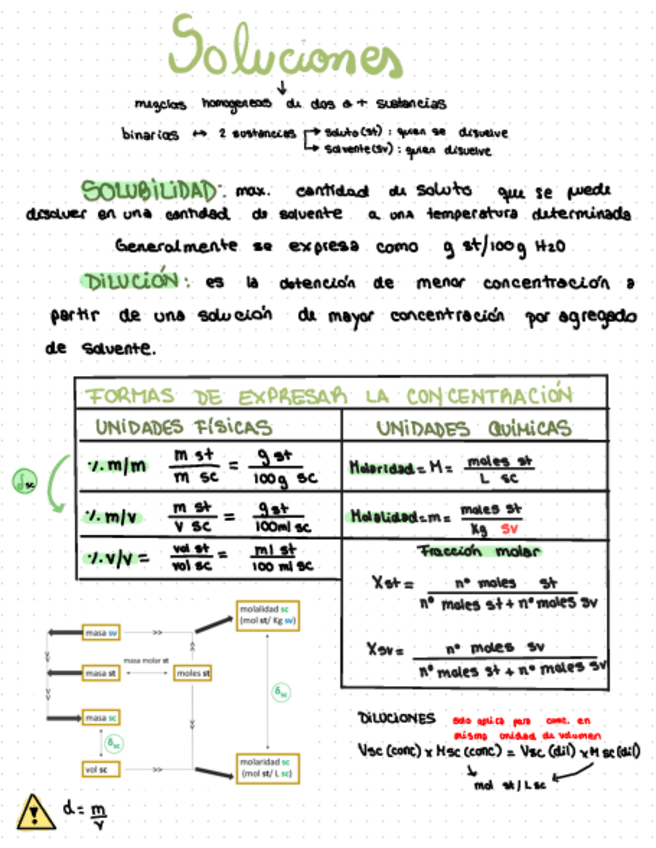 Soluciones
mezclas homogeneas de dos o + sustancias
binarias ↔ 2 sustancias → soluto(st) : quien se disuelve
→ solvente(sv) : quien disuelve
SOLUBILIDAD: max. cantidad de soluto que se puede
disolver en una cantidad de solvente a una temperatura determinada
Generalmente se expresa como g st/100g H2O
DILUCIÓN: es la obtención de menor concentración a
partir de una solución de mayor concentración por agregado
de solvente.
FORMAS DE EXPRESAR LA CONCENTRACIÓN
UNIDADES FÍSICAS
UNIDADES QUÍMICAS
δsc
% m/m m st / m sc = g st / 100g sc
Molaridad = M = moles st / L sc
% m/v m st / v sc = g st / 100ml sc
Molalidad = m = moles st / Kg sv
% v/v = vol st / vol sc = ml st / 100 ml sc
Fracción molar
Xst = nº moles st / nº moles st + nº moles sv
Xsv = nº moles sv / nº moles st + nº moles sv
molalidad sc
(mol st/ Kg sv)
masa sv
>>
masa molar st
masa st
moles st
δsc
masa sc
δsc
vol sc
>>
molaridad sc
(mol st/ L sc)
DILUCIONES solo aplica para conc. en
misma unidad de volumen
Vsc (conc) x Msc (conc) = Vsc (dil) x M sc (dil)
mol st/Lsc
! d = m / v